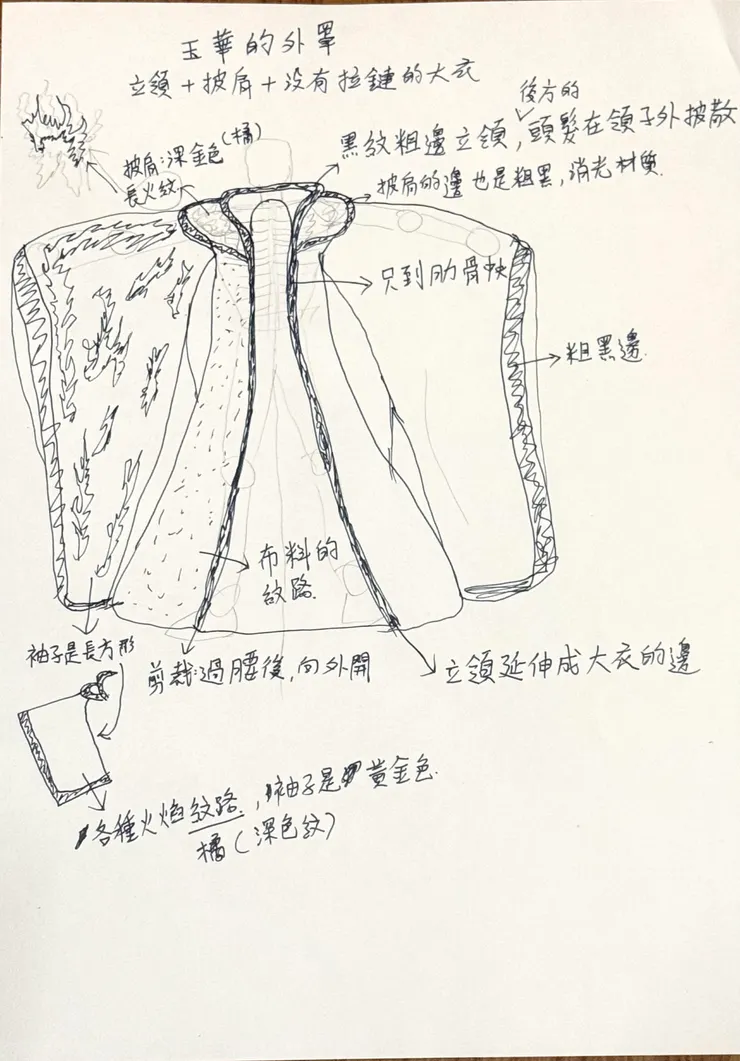 玉華的外罩
立領+披肩+没有拉鏈的大衣
後方的
黑紋粗邊立領,頭髮在領子外披散
披肩:深金色(橘)
長火紋
披肩的邊也是粗黑,消光材質.
只到肋骨帙
粗黑邊.
布料的
紋路.
袖子是長方形
剪裁:過腰後,向外開
立領延伸成大衣的邊
各種火焰紋路.,袖子是黃金色.
橘(深色紋)